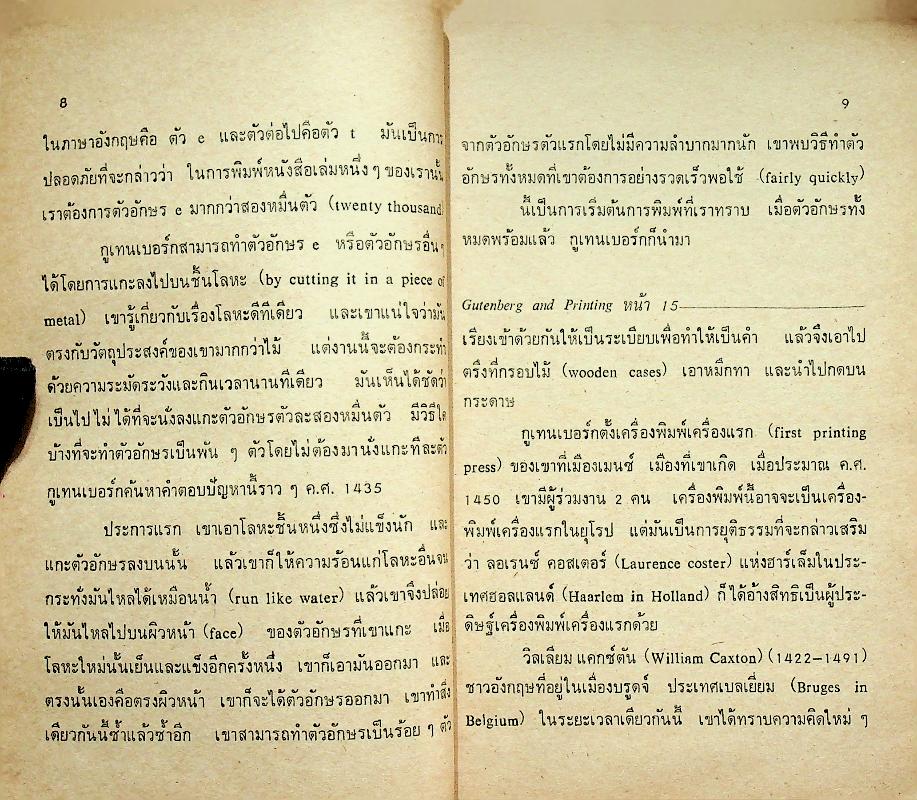 8
ในภาษาอังกฤษคือ ตัว e และตัวต่อไปคือตัว t มันเป็นการ
ปลอดภัยที่จะกล่าวว่า ในการพิมพ์หนังสือเล่มหนึ่ง ๆ ของเรานั้น
เราต้องการตัวอักษร e มากกว่าสองหมื่นตัว (twenty thousand
กูเทนเบอร์กสามารถทำตัวอักษร e หรือตัวอักษรอื่น ๆ
ได้โดยการแกะลงไปบนชิ้นโลหะ (by cutting it in a piece of
metal) เขารู้เกี่ยวกับเรื่องโลหะดีทีเดียว และเขาแน่ใจว่ามัน
ตรงกับวัตถุประสงค์ของเขามากกว่าไม้ แต่งานนี้จะต้องกระทำ
ด้วยความระมัดระวังและกินเวลานานทีเดียว มันเห็นได้ชัดว่า
เป็นไปไม่ได้ที่จะนั่งลงแกะตัวอักษรตัวละสองหมื่นตัว มีวิธีใด
บ้างที่จะทำตัวอักษรเป็นพัน ๆ ตัวโดยไม่ต้องมานั่งแกะทีละตัว
กูเทนเบอร์กค้นหาคำตอบปัญหานี้ราว ๆ ค.ศ. 1435
ประการแรก เขาเอาโลหะชิ้นหนึ่งซึ่งไม่แข็งนัก และ
แกะตัวอักษรลงบนนั้น แล้วเขาก็ให้ความร้อนแก่โลหะอื่นจน
กระทั่งมันไหลได้เหมือนน้ำ (run like water) แล้วเขาจึงปล่อย
ให้มันไหลไปบนผิวหน้า (face) ของตัวอักษรที่เขาแกะ เมื่อ
โลหะใหม่นั้นเย็นและแข็งอีกครั้งหนึ่ง เขาก็เอามันออกมา และ
ตรงนั้นเองคือตรงผิวหน้า เขาก็จะได้ตัวอักษรออกมา เขาทำสิ่ง
เดียวกันนี้ซ้ำแล้วซ้ำอีก เขาสามารถทำตัวอักษรเป็นร้อย ๆ ตัว
9
จากตัวอักษรตัวแรกโดยไม่มีความลำบากมากนัก เขาพบวิธีทำตัว
อักษรทั้งหมดที่เขาต้องการอย่างรวดเร็วพอใช้ (fairly quickly)
นี้เป็นการเริ่มต้นการพิมพ์ที่เราทราบ เมื่อตัวอักษรทั้ง
หมดพร้อมแล้ว กูเทนเบอร์กก็นำมา
Gutenberg and Printing หน้า 15
เรียงเข้าด้วยกันให้เป็นระเบียบเพื่อทำให้เป็นคำ แล้วจึงเอาไป
ตรึงที่กรอบไม้ (wooden cases) เอาหมึกทา และนำไปกดบน
กระดาษ
กูเทนเบอร์กตั้งเครื่องพิมพ์เครื่องแรก (first printing
press) ของเขาที่เมืองเมนซ์ เมืองที่เขาเกิด เมื่อประมาณ ค.ศ.
1450 เขามีผู้ร่วมงาน 2 คน เครื่องพิมพ์นี้อาจจะเป็นเครื่อง-
พิมพ์เครื่องแรกในยุโรป แต่มันเป็นการยุติธรรมที่จะกล่าวเสริม
ว่า ลอเรนซ์ คอสเตอร์ (Laurence coster) แห่งฮาร์เล็มในประ-
เทศฮอลแลนด์ (Haarlem in Holland) ก็ได้อ้างสิทธิเป็นผู้ประ-
ดิษฐ์เครื่องพิมพ์เครื่องแรกด้วย
วิลเลียม แคกซ์ตัน (William Caxton) (1422–1491)
ชาวอังกฤษที่อยู่ในเมืองบรูดจ์ ประเทศเบลเยี่ยม (Bruges in
Belgium) ในระยะเวลาเดียวกันนี้ เขาได้ทราบความคิดใหม่ ๆ